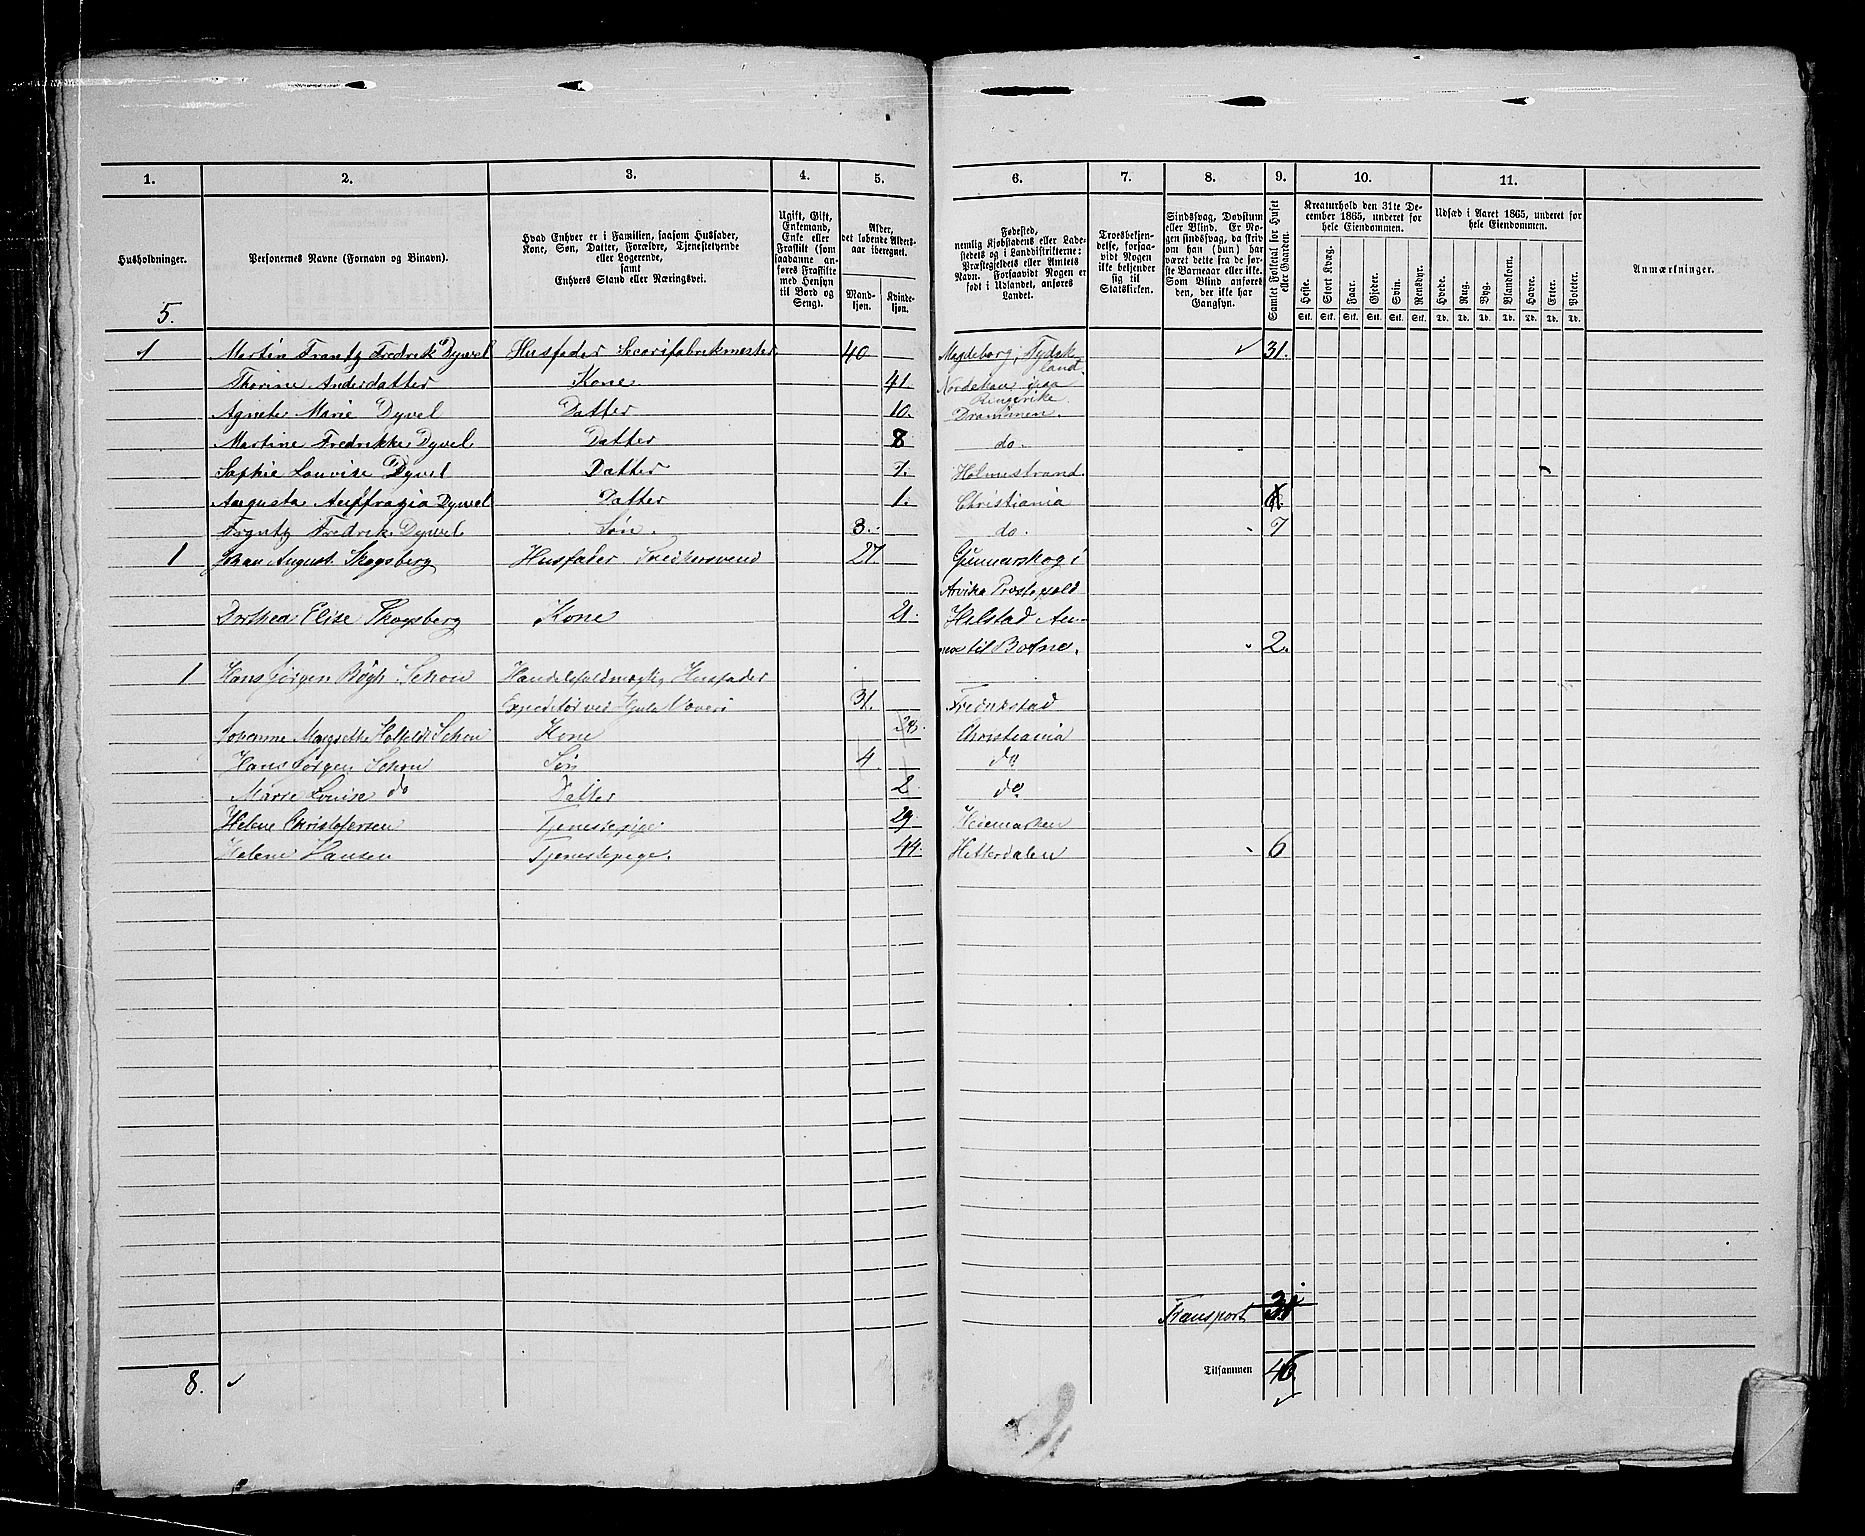 1. 2. 3. 4. 5. 6. 7. 8. 9. 10. 11.
Husholdninger.
Personernes Navne (Fornavn og Binavn).
Hvad Enhver er i Familien, saasom Husfader, Kone, Søn, Datter, Forældre, Tjenestetyende eller Logerende, samt Enhvers Stand eller Næringsvei.
Ugift, Gift, Enkemand, Enke eller Fraskilt (som saadanne anføres Fraskilte med Hensyn til Bord og Seng).
Alder, det løbende Aldersaar iberegnet.
Mandkjøn. Kvindekjøn.
Fødested, nemlig Kjøbstadens eller Ladestedets og i Landdistrikterne: Præstegjeldets eller Amtets Navn. Forsaavidt Nogen er født i Udlandet, anføres Landet.
Troesbekjendelse, forsaavidt Nogen ikke bekjender sig til Statskirken.
Sindssvag, Døvstum eller Blind. Er Nogen sindssvag, da skriv om han (hun) har været dette fra de første Barneaar eller ikke. Som Blind anføres den, der ikke har Gangsyn.
Samlet Folketal for Huset eller Gaarden.
Kreaturhold den 31te December 1865, underet for hele Eiendommen.
Heste. Stort Kvæg. Faar. Gjeder. Svin. Rensdyr.
Stk. Stk. Stk. Stk. Stk. Stk.
Udsæd i Aaret 1865, underet for hele Eiendommen.
Hvede. Rug. Byg. Blandkorn. Havre. Erter. Poteter.
Td. Td. Td. Td. Td. Td. Td.
Anmærkninger.
5.
1 Martin Frantz Fredrik Dyvel Husfader 40 Magdeborg, Tydskland. 31.
Thorine Andersdatter Kone 41. paa Ringerike
Agnete Marie Dyvel Datter 10. Drammen.
Martine Fredrikke Dyvel Datter 8 do.
Sophie Louvise Dyvel Datter 7. Holmestrand.
Augusta Dyvel Datter 1. Christiania
Frantz Fredrik Dyvel Søn. 3. do. 7
1 Johan August Skogsberg Husfader 27. Gunnarskog i
Arvika Præstegjeld
Dorthea Elise Skogsberg Kone 21. Hilstad An-
nex til Botne. 2.
1 Hans Jørgen Bøgh Schou Handelsfuldmægtig Husfader
Expeditør ved Hjula Væveri 31. Fredrikstad
Johanne Schou Kone Christiania
Hans Jørgen Schou Søn 4. do
Marie Louise do Datter 2 do
Helene Christofersen Tjenestepige 29.
Helene Hansen Tjenestepige. 44. Hitterdalen 6
Transport 31
Tilsammen 46
8.